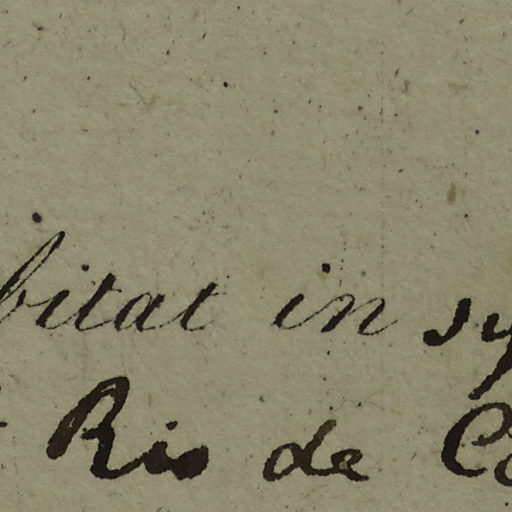 bitat in sy
Rio de Co